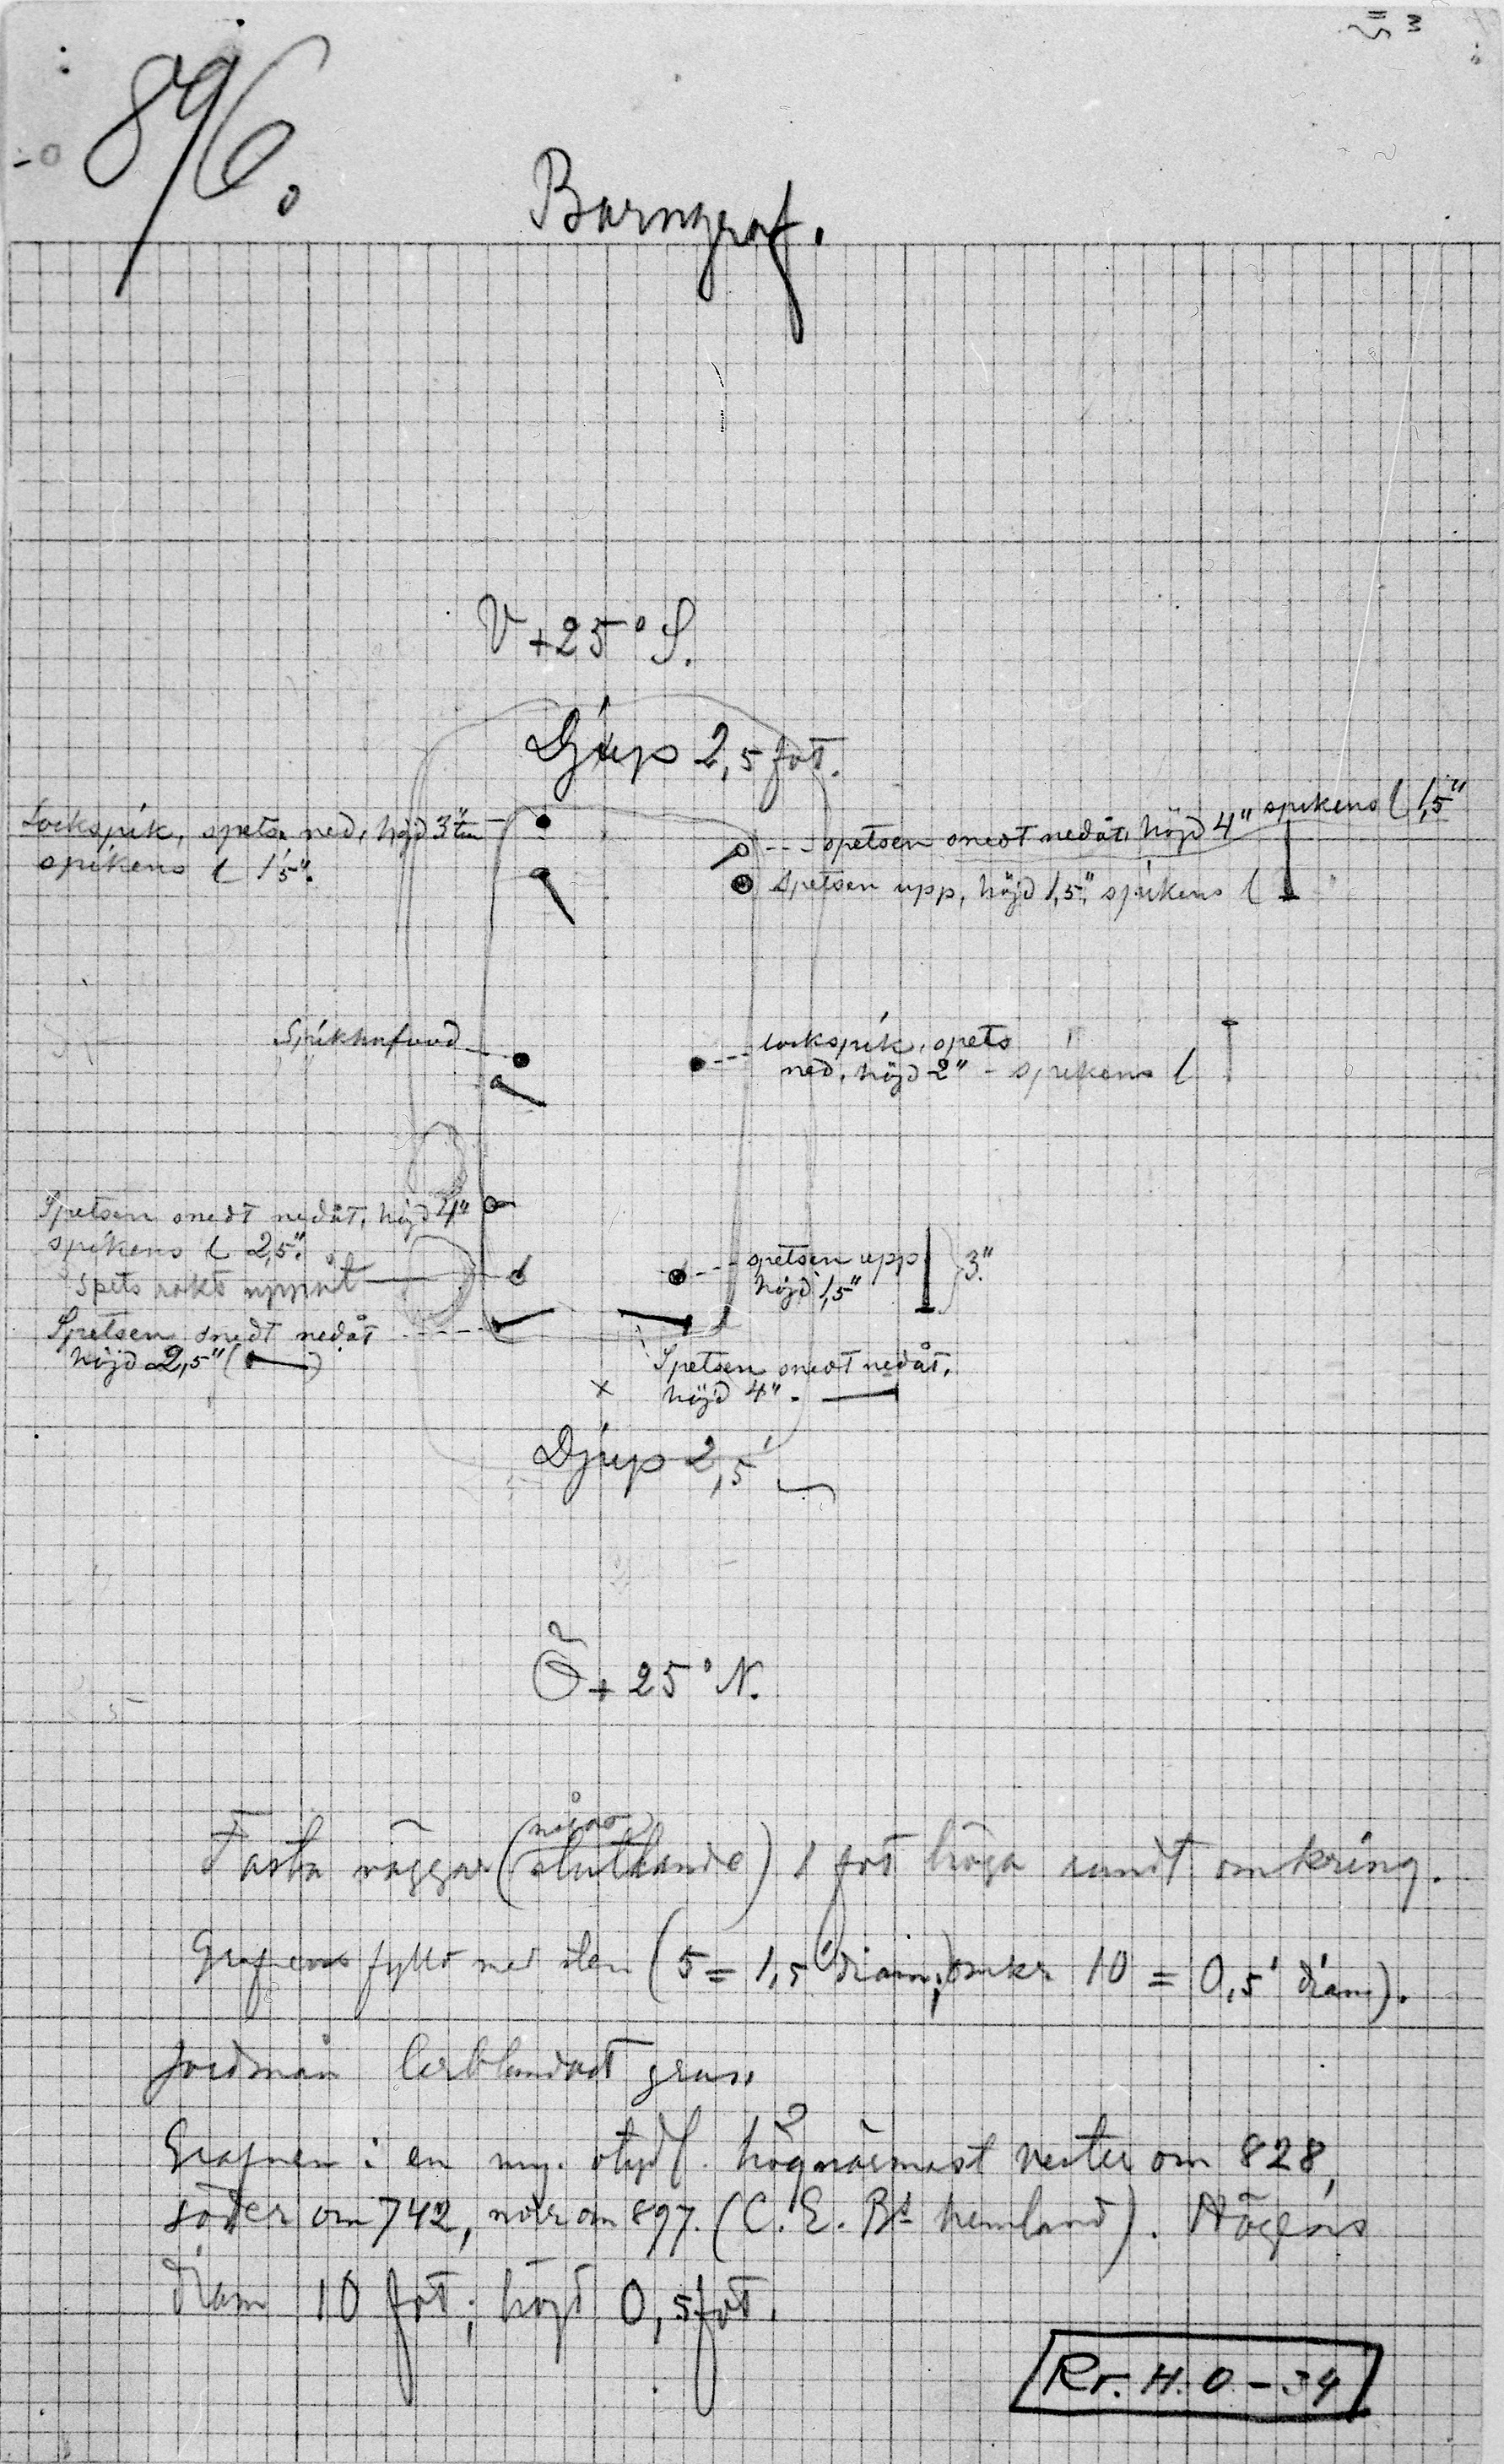 896.
Barngraf.
V + 25° S.
Djup 2,5 fot.
Lockspik, spets ned, höjd 3"
spikens l 1,5".
spetsen snedt nedåt, höjd 4" spikens l 1,5"
spetsen upp, höjd 1,5", spikens l
Spikhufvud
lockspik, spets
ned, höjd 2" - spikens l
Spetsen snedt nedåt, höjd 4"
spikens l 2,5".
Spets rakt uppåt
spetsen upp
höjd 1,5"
3"
Spetsen snedt nedåt
höjd 2,5" ( )
Spetsen snedt nedåt,
höjd 4".
x
Djup 2,5'
Ö + 25° N.
något
Fasta väggar (sluttande) 1 fot höga rundt omkring.
Grafven fylld med sten (5 = 1,5' diam; omkr 10 = 0,5' diam).
Jordmån lerblandadt grus.
Grafven i en my. otydl. hög närmast vester om 828,
söder om 742, norr om 897. (C. E. Bs hemland). Högens
diam 10 fot; höjd 0,5 fot.
Rr. H. O - 34